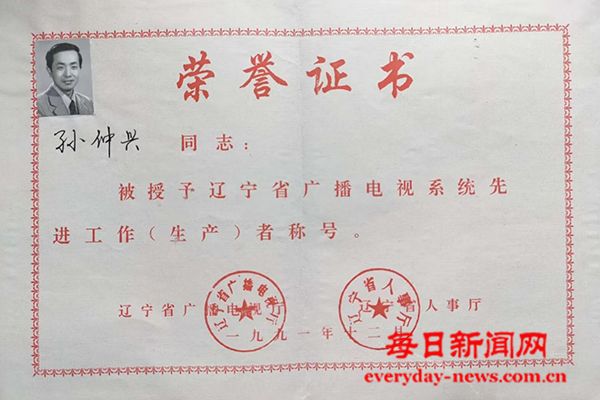 荣誉证书
孙仲兴 同志：
被授予辽宁省广播电视系统先
进工作（生产）者称号。
辽宁省广播电视厅 辽宁省人事厅
辽宁省广播电视厅
辽宁省人事厅
一九九一年十二月
每日新闻网
everyday-news.com.cn